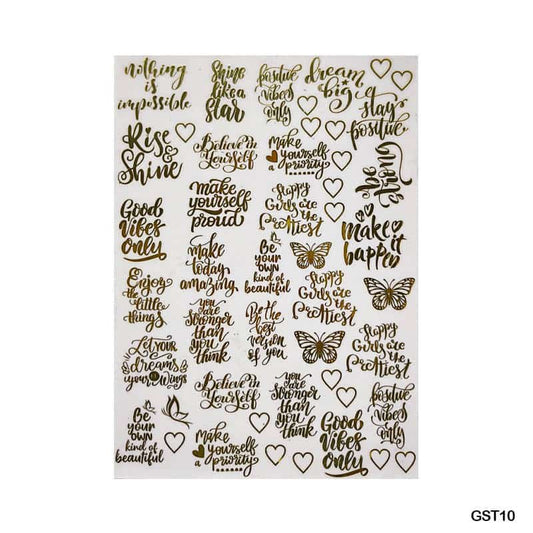 nothing
is
impossible
Shine
like a
Star
positive
vibes
only
dream
big
stay
positive
Rise &
Shine
Believe in
Yourself
Make
yourself
a priority
be
strong
Good
Vibes
Only
make
yourself
proud
Happy
Girls are
the
Prettiest
make
it
happen
make
today
amazing
Be
your own
kind of
beautiful
Enjoy
the little
things
you
are
stronger
than
you
think
Be the
best
version
of you
Happy
Girls are
the
Prettiest
Happy
Girls are
the
Prettiest
Let your
dreams be
your wings
Believe in
Yourself
you
are
stronger
than
you
think
positive
vibes
only
Be
your
own
kind of
beautiful
Make
yourself
a priority
Good
Vibes
Only
GST10